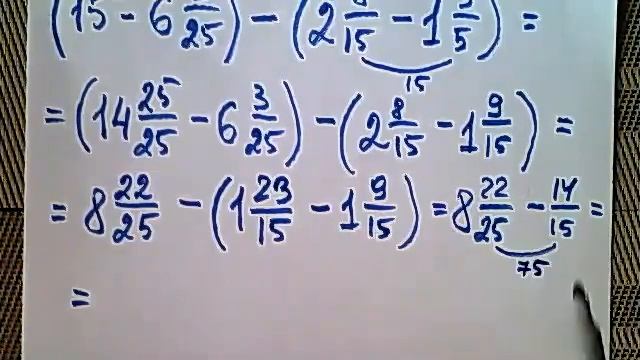 (15 - 6 3/25) - (2 8/15 - 1 3/5) =
15
= (14 25/25 - 6 3/25) - (2 8/15 - 1 9/15) =
= 8 22/25 - (1 23/15 - 1 9/15) = 8 22/25 - 14/15 =
75
=